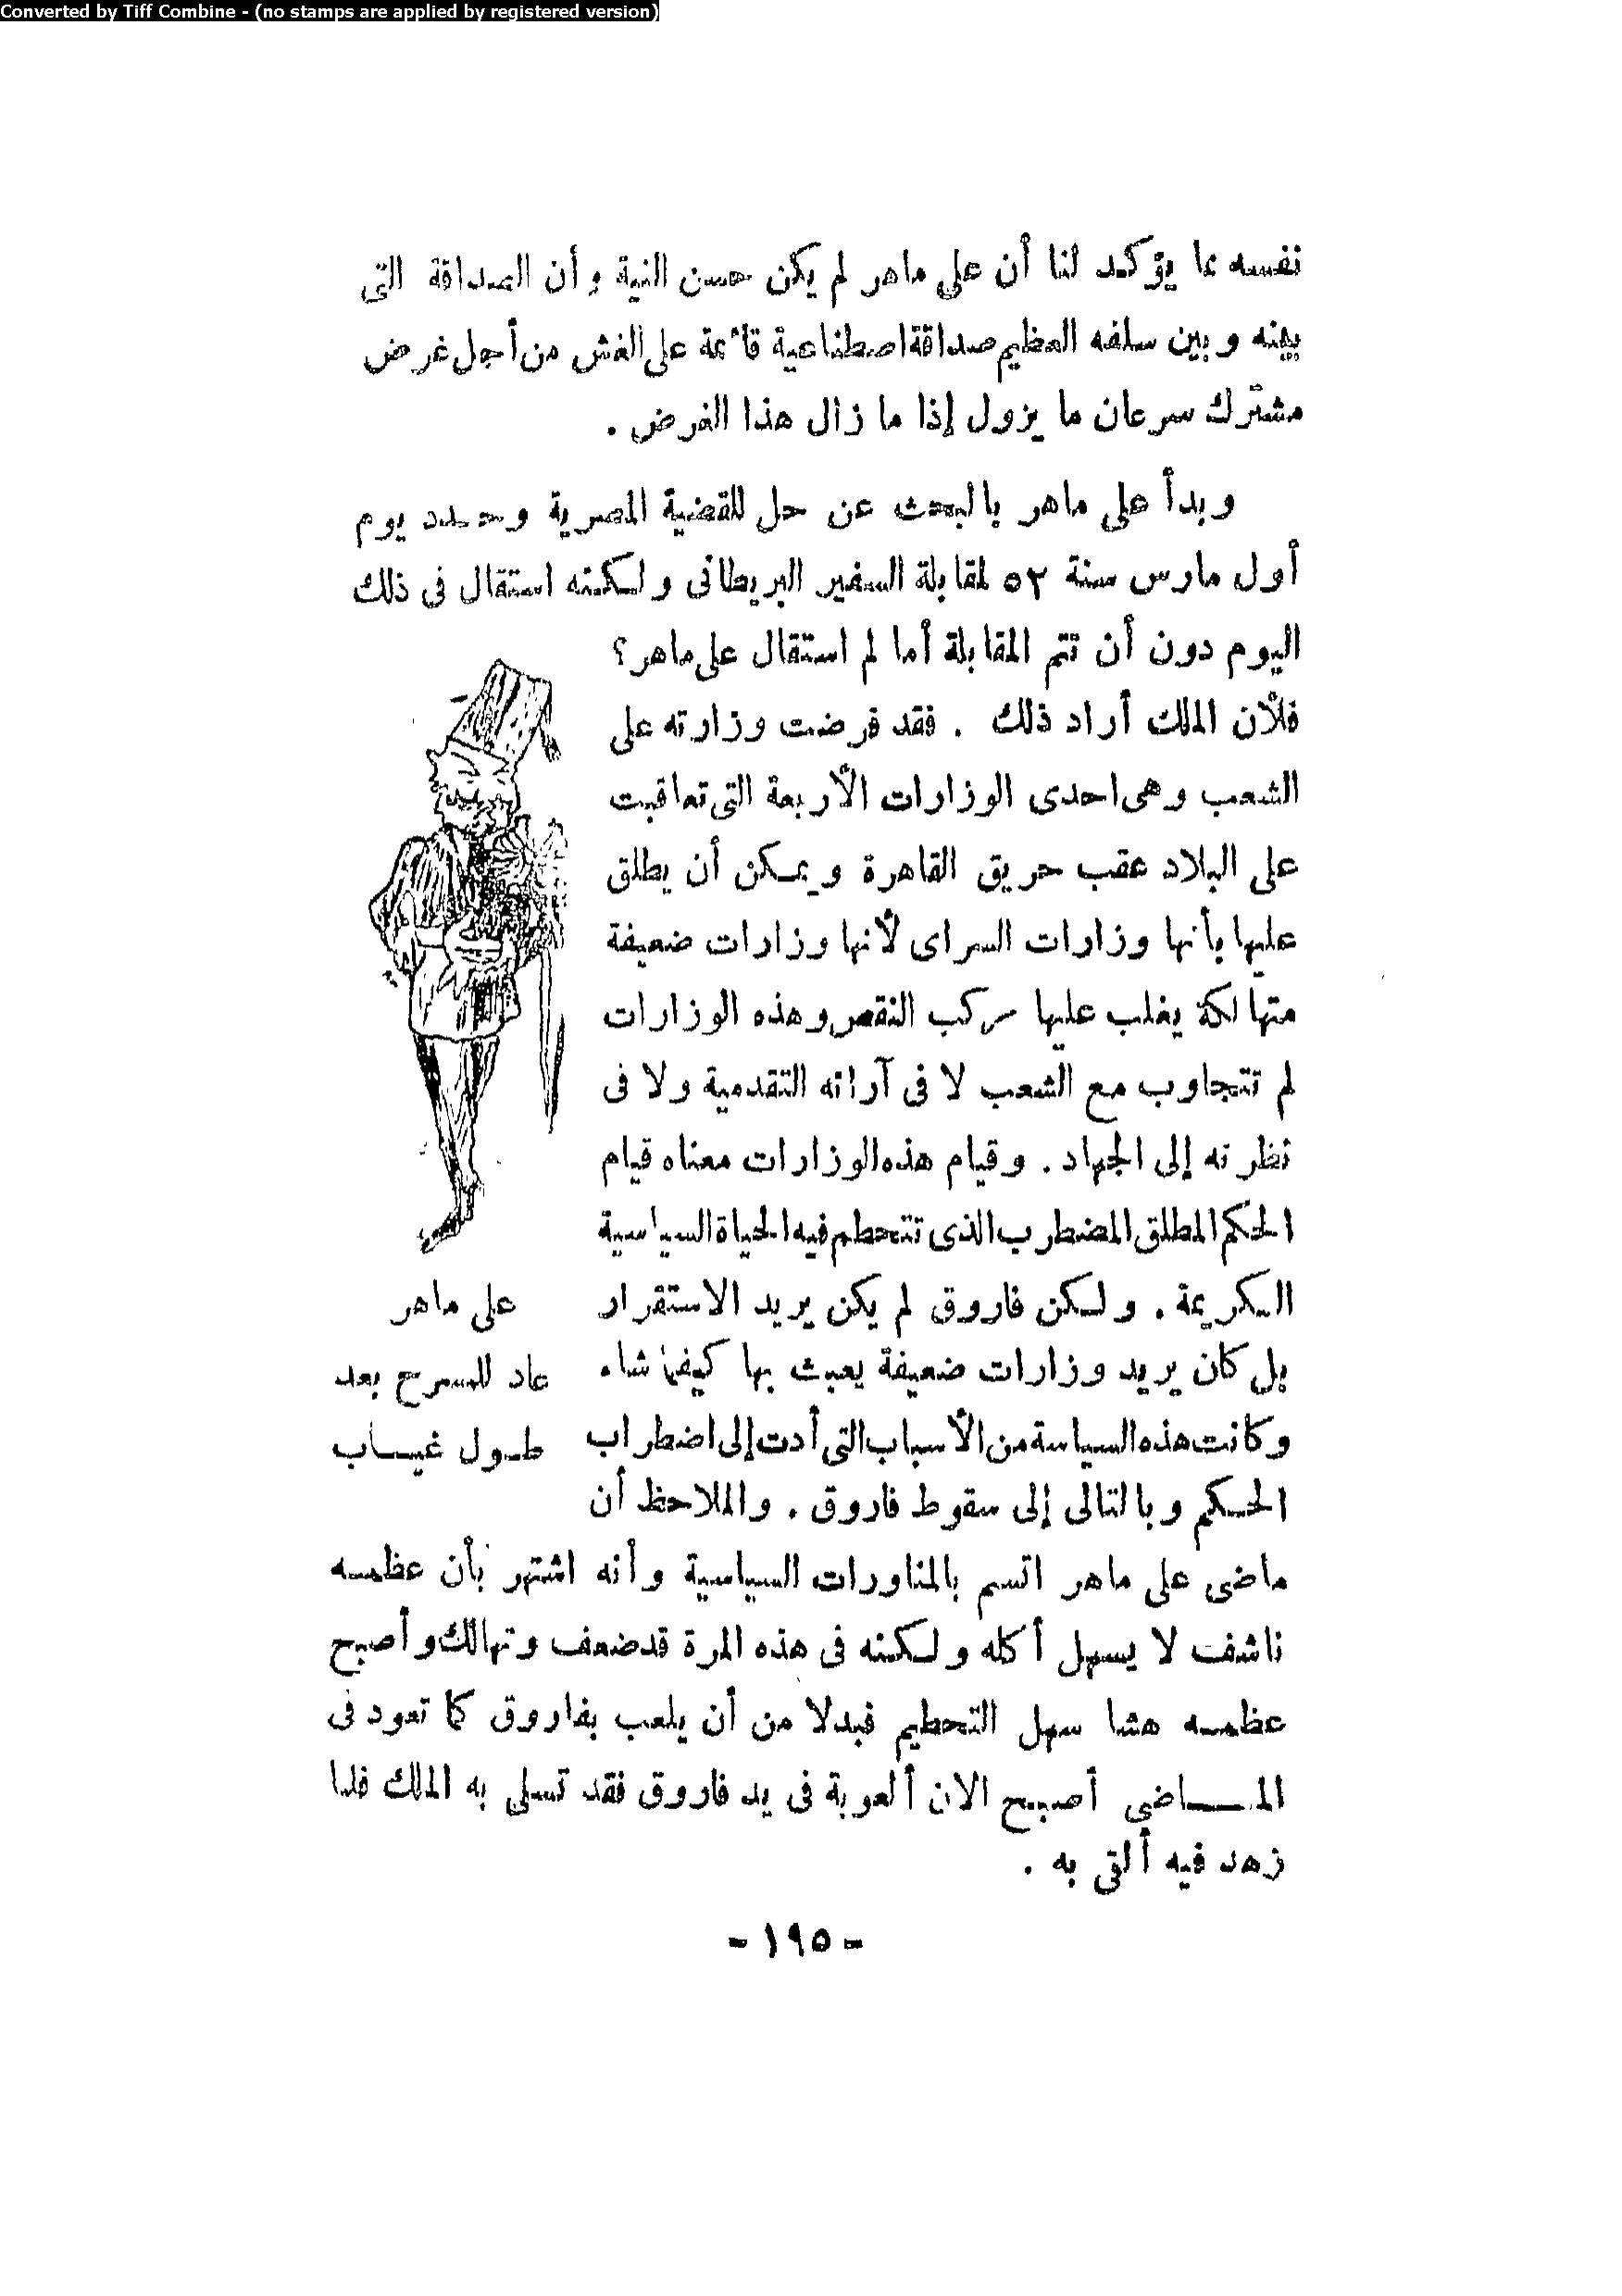 Converted by Tiff Combine - (no stamps are applied by registered version)
نفسه مما يؤكد لنا أن على ماهر لم يكن حسن النية وأن الصداقة التى
بينه وبين سلفه العظيم صداقة اصطناعية قائمة على الغش من أجل غرض
مشترك سرعان ما يزول إذا ما زال هذا الغرض .
وبدأ على ماهر بالبحث عن حل للقضية المصرية وحدد يوم
أول مارس سنة ٥٢ لمقابلة السفير البريطانى ولكنه استقال فى ذلك
اليوم دون أن تتم المقابلة أما لم استقال على ماهر؟
فلأن الملك أراد ذلك . فقد فرضت وزارته على
الشعب وهى احدى الوزارات الأربعة التى تعاقبت
على البلاد عقب حريق القاهرة ويمكن أن يطلق
عليها بأنها وزارات السراى لأنها وزارات ضعيفة
متهالكة يغلب عليها مركب النقص وهذه الوزارات
لم تتجاوب مع الشعب لا فى آرائه التقدمية ولا فى
نظرته إلى الجهاد . وقيام هذه الوزارات معناه قيام
الحكم المطلق المضطرب الذى تتحطم فيه الحياة السياسية
الكريمة . ولكن فاروق لم يكن يريد الاستقرار
بل كان يريد وزارات ضعيفة يعبث بها كيفما شاء
وكانت هذه السياسة من الأسباب التى أدت إلى اضطراب
الحكم وبالتالى إلى سقوط فاروق . والملاحظ أن
على ماهر
عاد للمسرح بعد
طول غياب
ماضى على ماهر اتسم بالمناورات السياسية وأنه اشتهر بأن عظمه
ناشف لا يسهل أكله ولكنه فى هذه المرة قد ضعف وتهالك وأصبح
عظمه هشا سهل التحطيم فبدلا من أن يلعب بفاروق كما تعود فى
المـاضى أصبح الان ألعوبة فى يد فاروق فقد تسلى به الملك فلما
زهد فيه ألقى به .
- ١٩٥ -